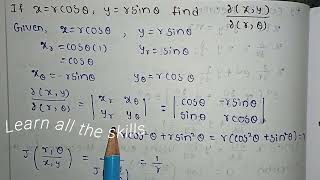 If x=rcosθ, y=rsinθ find ∂(x,y)/∂(r,θ)
Given, x=rcosθ, y=rsinθ
x_r = cosθ(1) y_r = sinθ
=cosθ
x_θ = -rsinθ y_θ = rcosθ
∂(x,y)/∂(r,θ) = |x_r x_θ; y_r y_θ| = |cosθ -rsinθ; sinθ rcosθ|
Learn all the skills
rcos²θ + rsin²θ = r(cos²θ + sin²θ) =
J(r,θ/x,y) = = 1/r